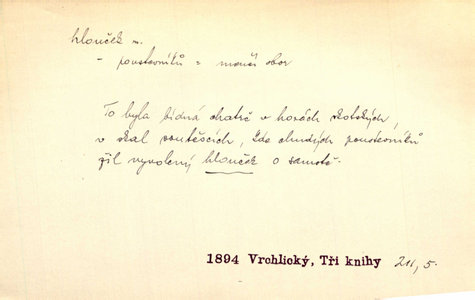 hlouček m.
- poustevníků = menší sbor
To byla bídná chatrč v horách skotských,
v skal soutěscích, kde chudých poustevníků
žil vyvolený hlouček o samotě.
1894 Vrchlický, Tři knihy 211, 5.